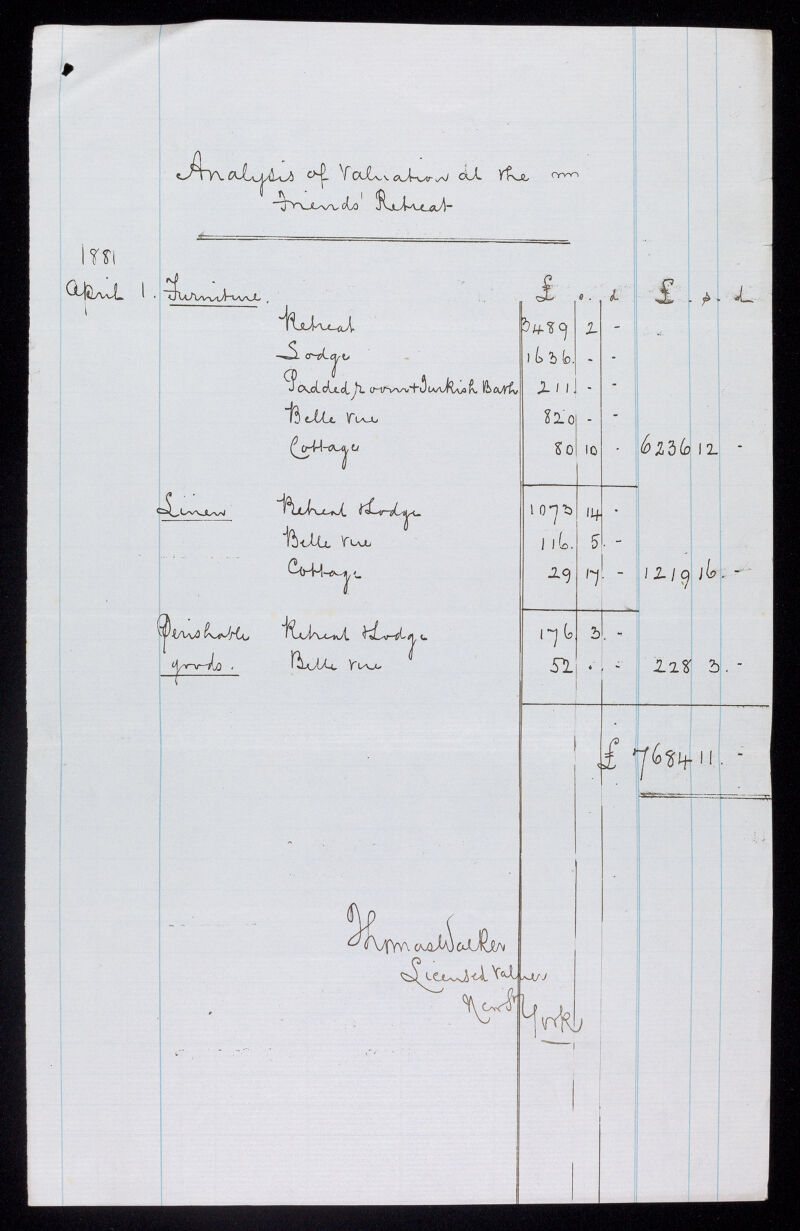 Analysis of Valuation at the
Friends' Retreat
1881
April 1. Furniture. £ s. d £. s. d
Retreat 3489 2 -
Lodge 1636. - -
Padded room + Turkish Bath 211. - -
Belle Vue 820 - -
Cottage 80 10 - 6236 12 -
Linen Retreat & Lodge 1073 14 -
Belle Vue 116. 5. -
Cottage 29 17. - 1219 16. -
Perishable Retreat & Lodge 176. 3. -
goods. Belle Vue 52 . - 228 3. -
£ 7684 11. -
Thomas Walker
Licensed Valuer
New St York